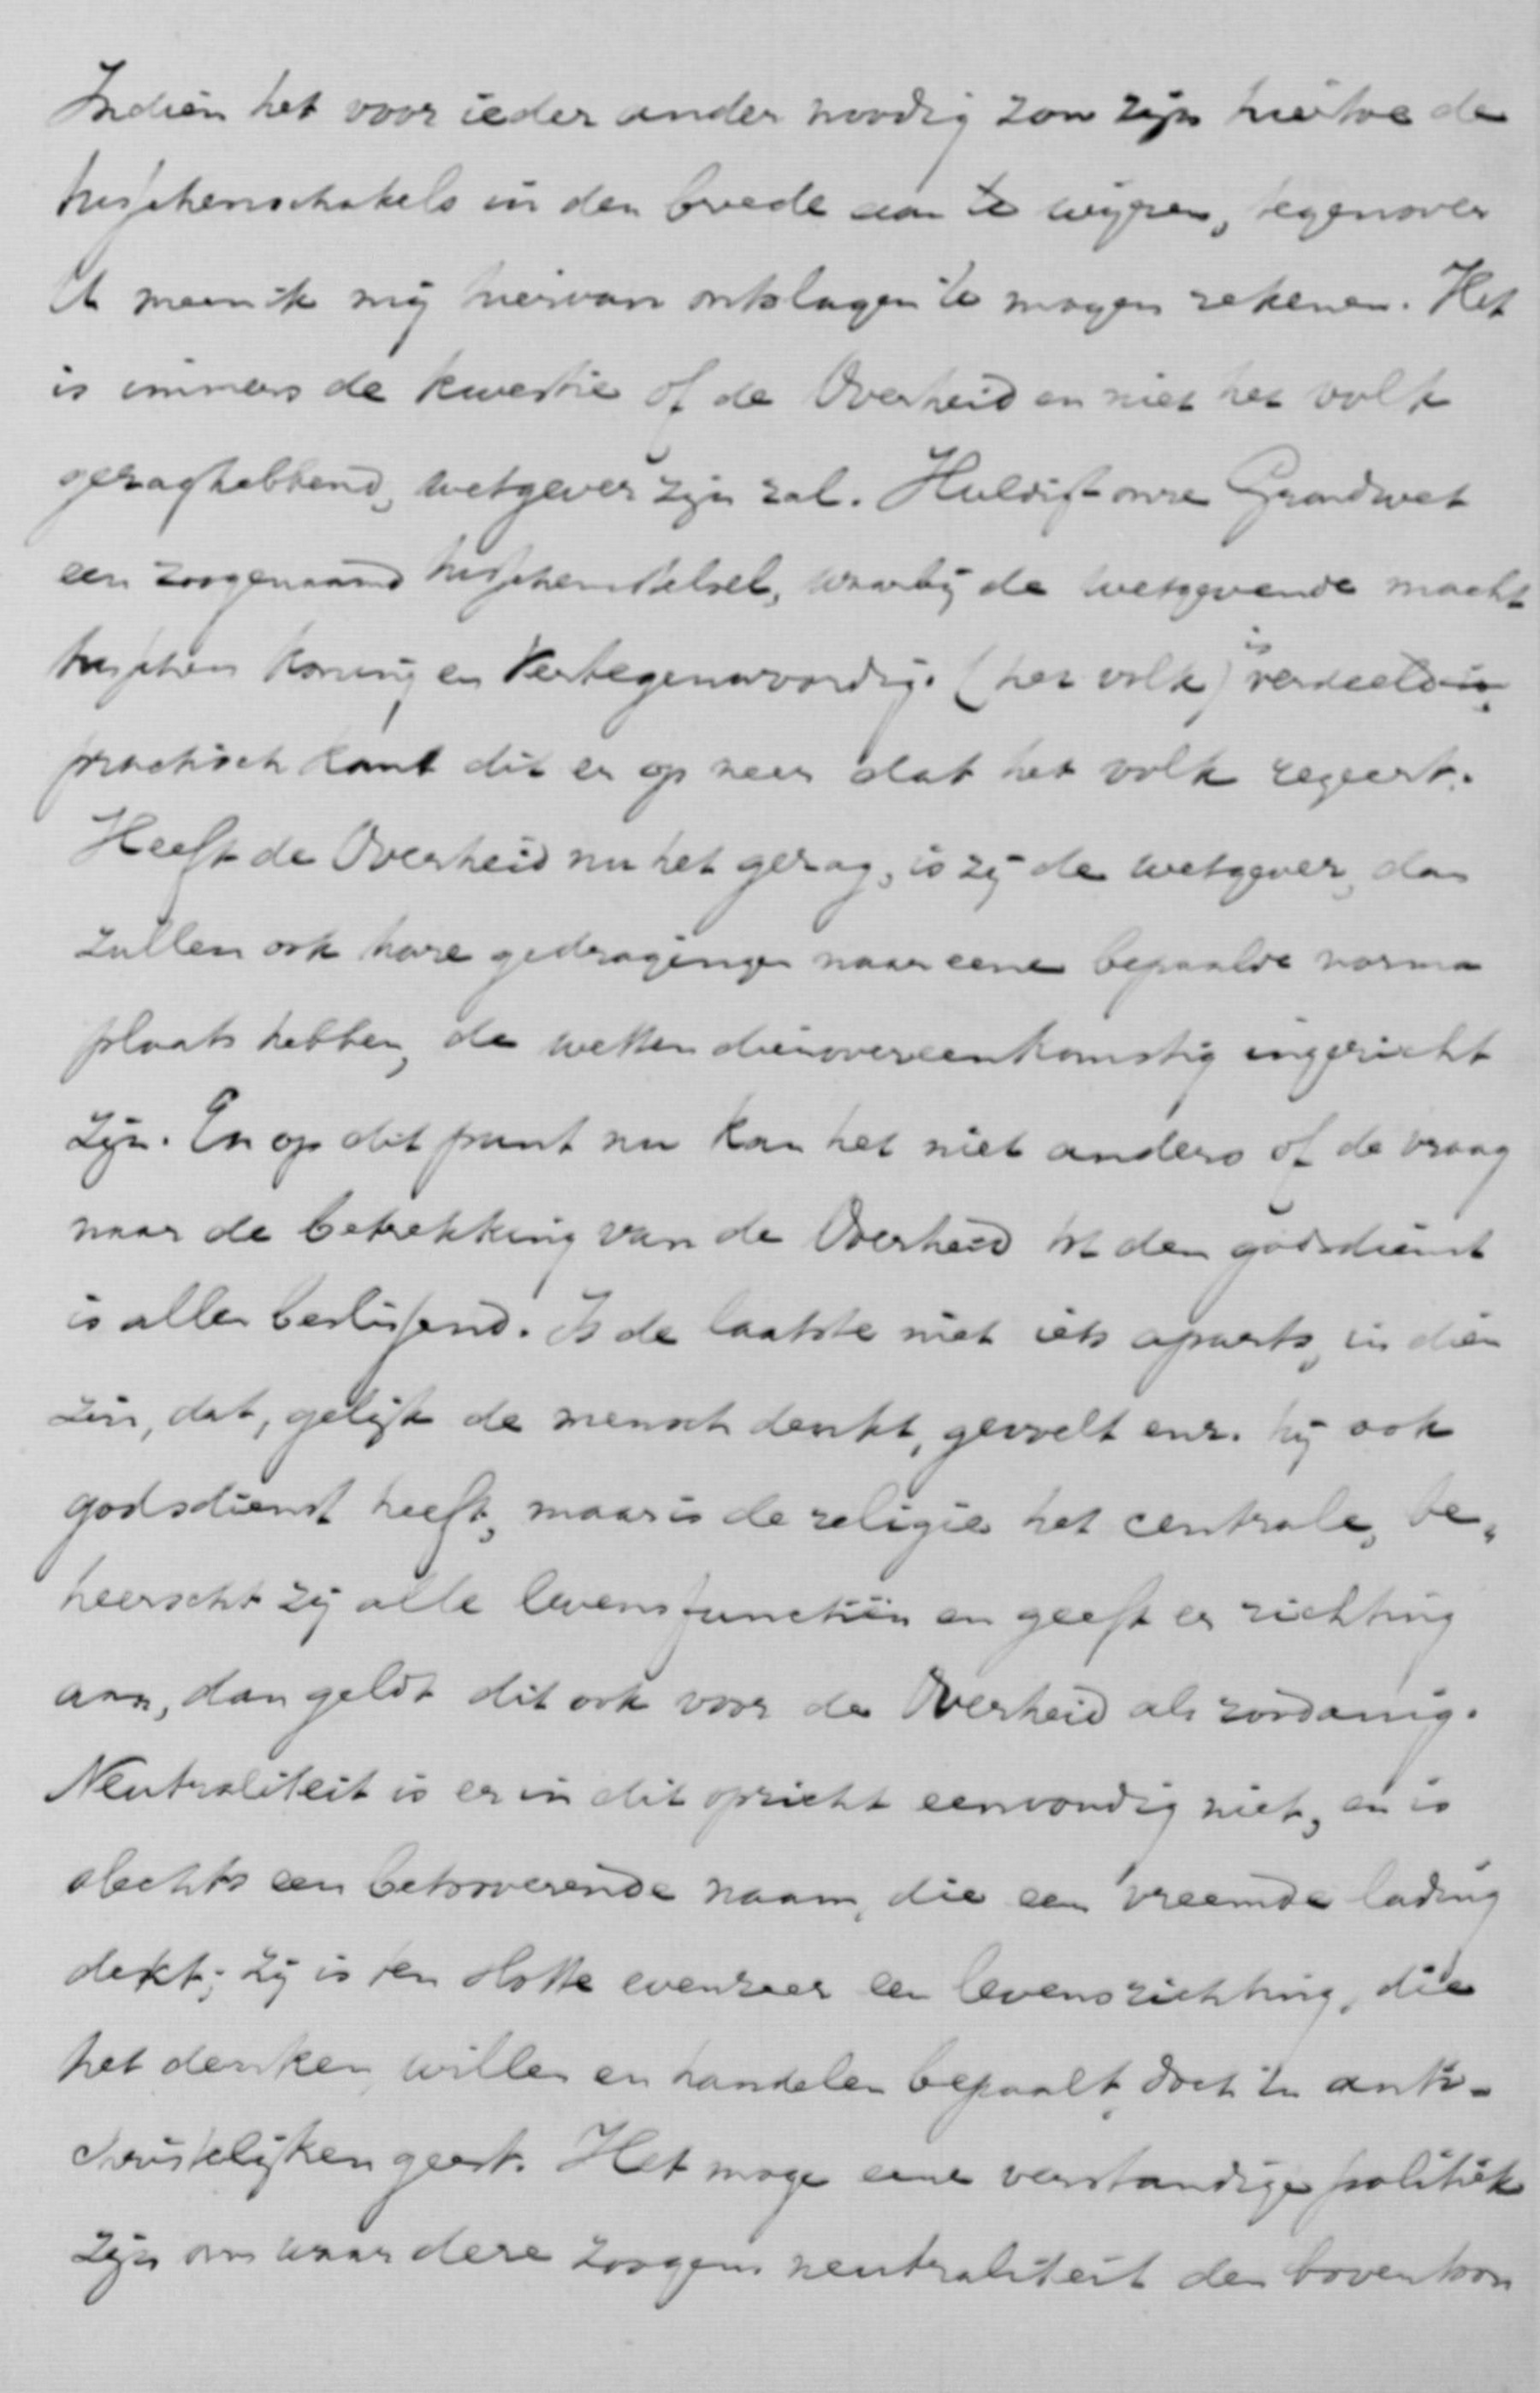 Indien het voor ieder ander noodig zou zijn hiertoe de
tusschenschakels in den brede aan te wijzen, tegenover
U meen ik mij hiervan ontslagen te mogen rekenen. Het
is immers de kwestie of de Overheid en niet het volk
gezaghebbend, wetgever zijn zal. Huldigt onze Grondwet
een zoogenaamd tusschenstelsel, waarbij de wetgevende macht
tusschen Koning en Vertegenwoordig. (het volk) is verdeeld is,
practisch komt dit er op neer dat het volk regeert.
Heeft de Overheid nu het gezag, is zij de wetgever, dan
zullen ook hare gedragingen naar eene bepaalde norma
plaats hebben, de wetten dienovereenkomstig ingericht
zijn. En op dit punt nu kan het niet anders of de vraag
naar de betrekking van de Overheid tot den godsdienst
is alles beslissend. Is de laatste niet iets aparts, in dien
zin, dat, gelijk de mensch denkt, gevoelt enz. hij ook
godsdienst heeft, maar is de religie het centrale, be„
heerscht zij alle levensfunctiën en geeft er richting
aan, dan geldt dit ook voor de Overheid als zoodanig.
Neutraliteit is er in dit opzicht eenvoudig niet, en is
slechts een betooverende naam, die een vreemde lading
dekt; zij is ten slotte evenzeer een levensrichting, die
het denken, willen en handelen bepaalt, doch in anti-
christelijken geest. Het moge eene verstandige politiek
zijn om waar deze zoogen. neutraliteit den boventoon